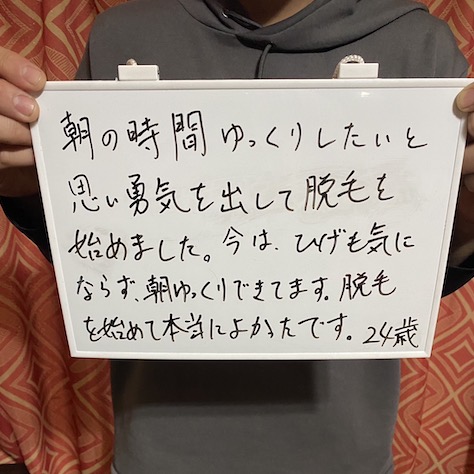 朝の時間ゆっくりしたいと
思い勇気を出して脱毛を
始めました。今は、ひげも気に
ならず、朝ゆっくりできてます。脱毛
を始めて本当によかったです。24歳